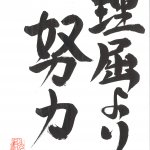 理屈より
努力